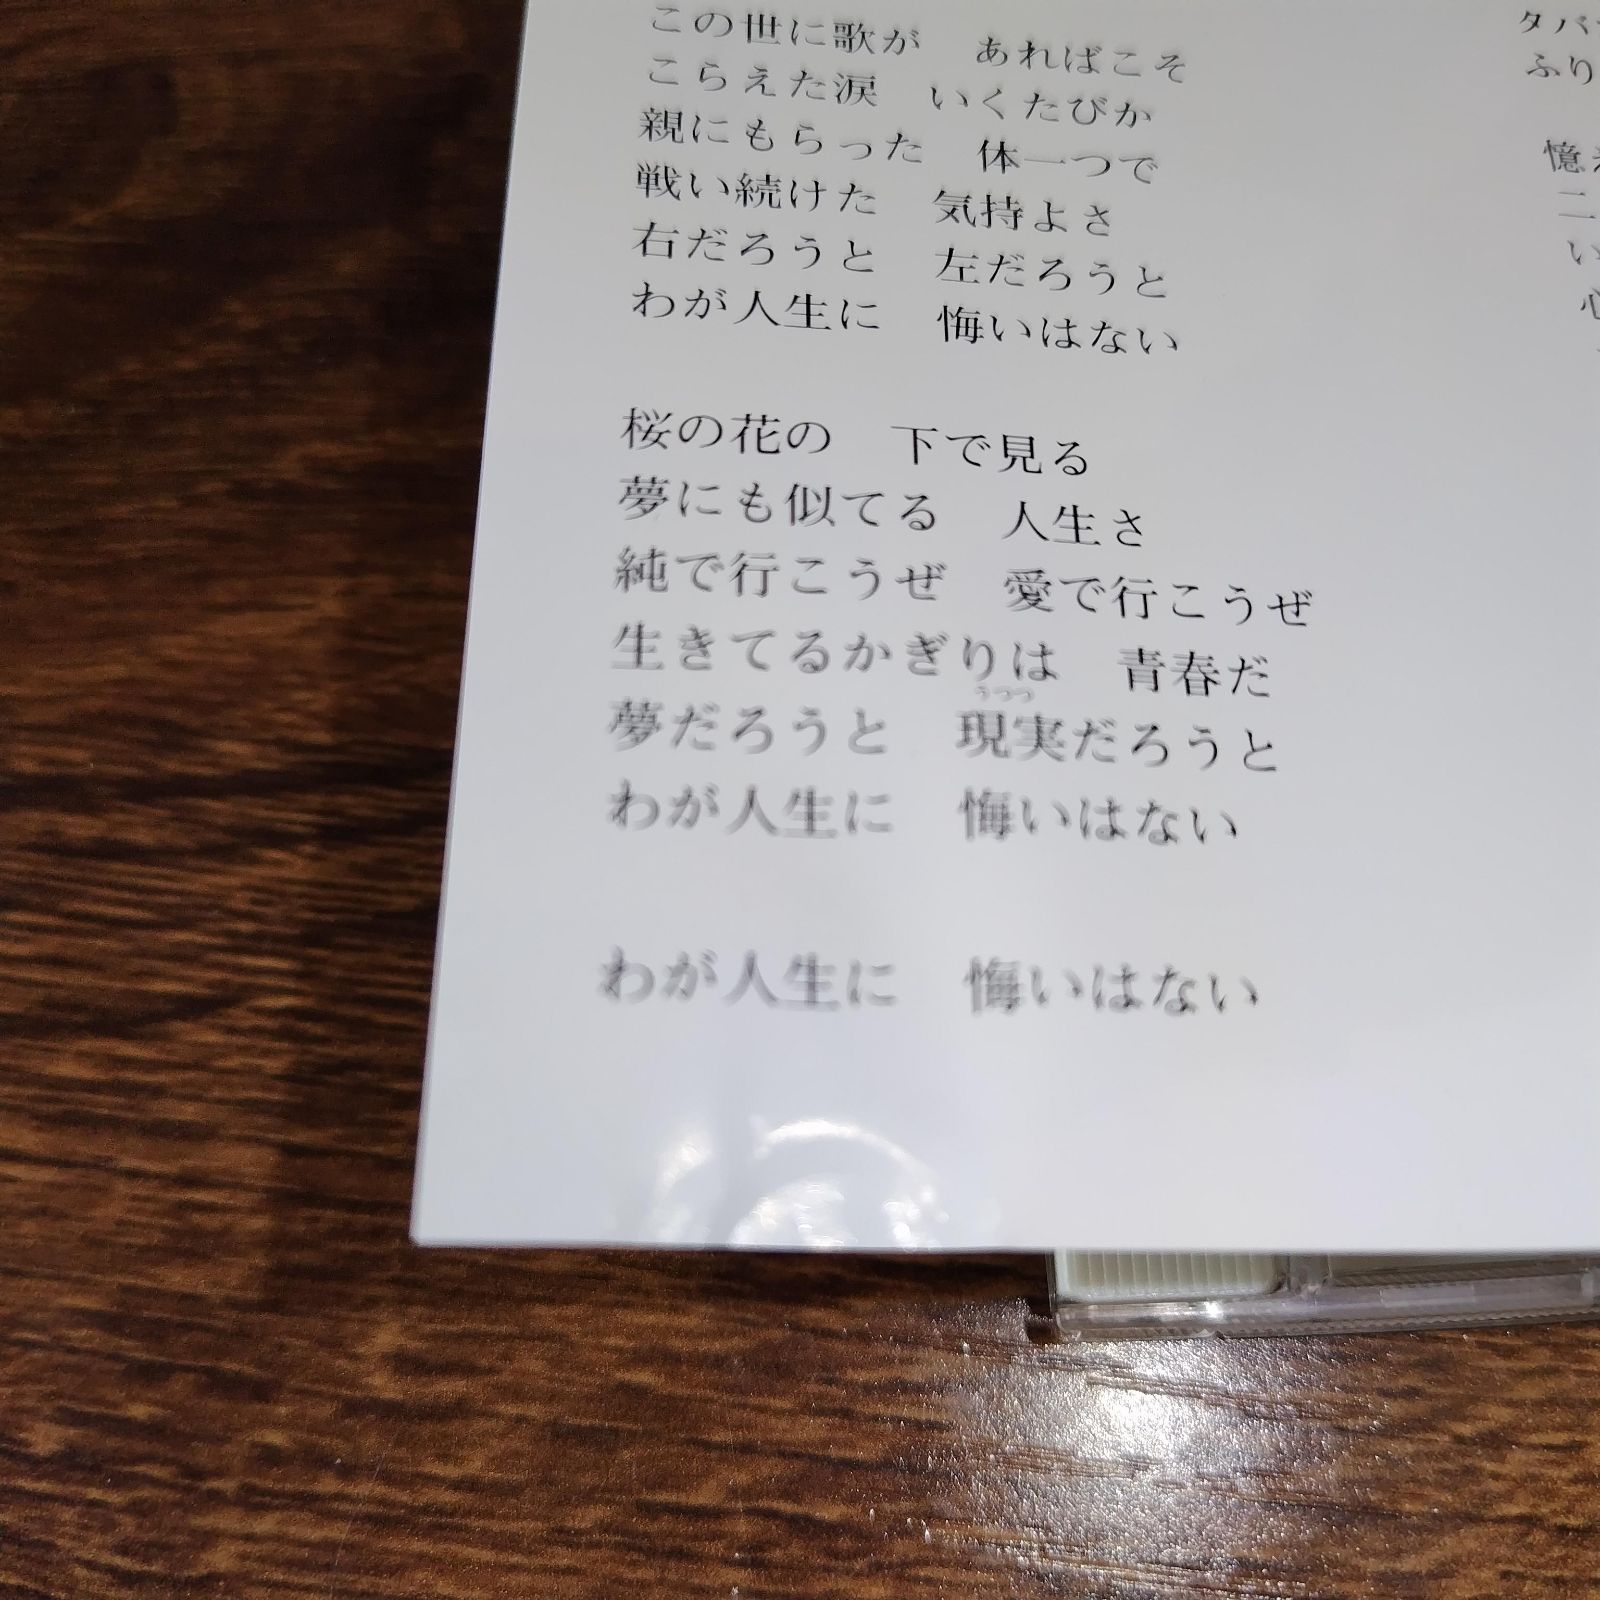 この世に歌が　あればこそ
こらえた涙　いくたびか
親にもらった　体一つで
戦い続けた　気持よさ
右だろうと　左だろうと
わが人生に　悔いはない
桜の花の　下で見る
夢にも似てる　人生さ
純で行こうぜ　愛で行こうぜ
生きてるかぎりは　青春だ
うつつ
夢だろうと　現実だろうと
わが人生に　悔いはない
わが人生に　悔いはない
タバ
ふり
憶
二
い
心